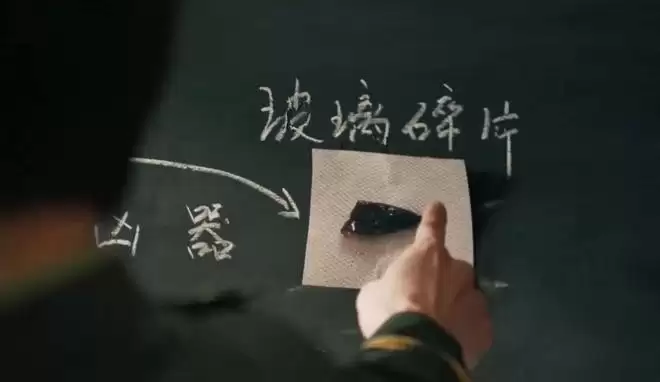 玻璃碎片
凶器